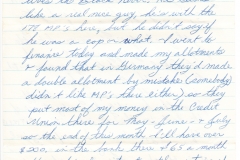 like a real nice guy, he's with the
MP's here, but he didn't say if
he was a cop or what. I went to
finance today and made my allotments
& found that in Germany they'd made
a double allotment by mistake (somebody
didn't like MP's there either) so they
put most of my money in the Credit
Union there for May - June - & July
so the end of this month I'll have over
$200, in the bank there & 65 a month